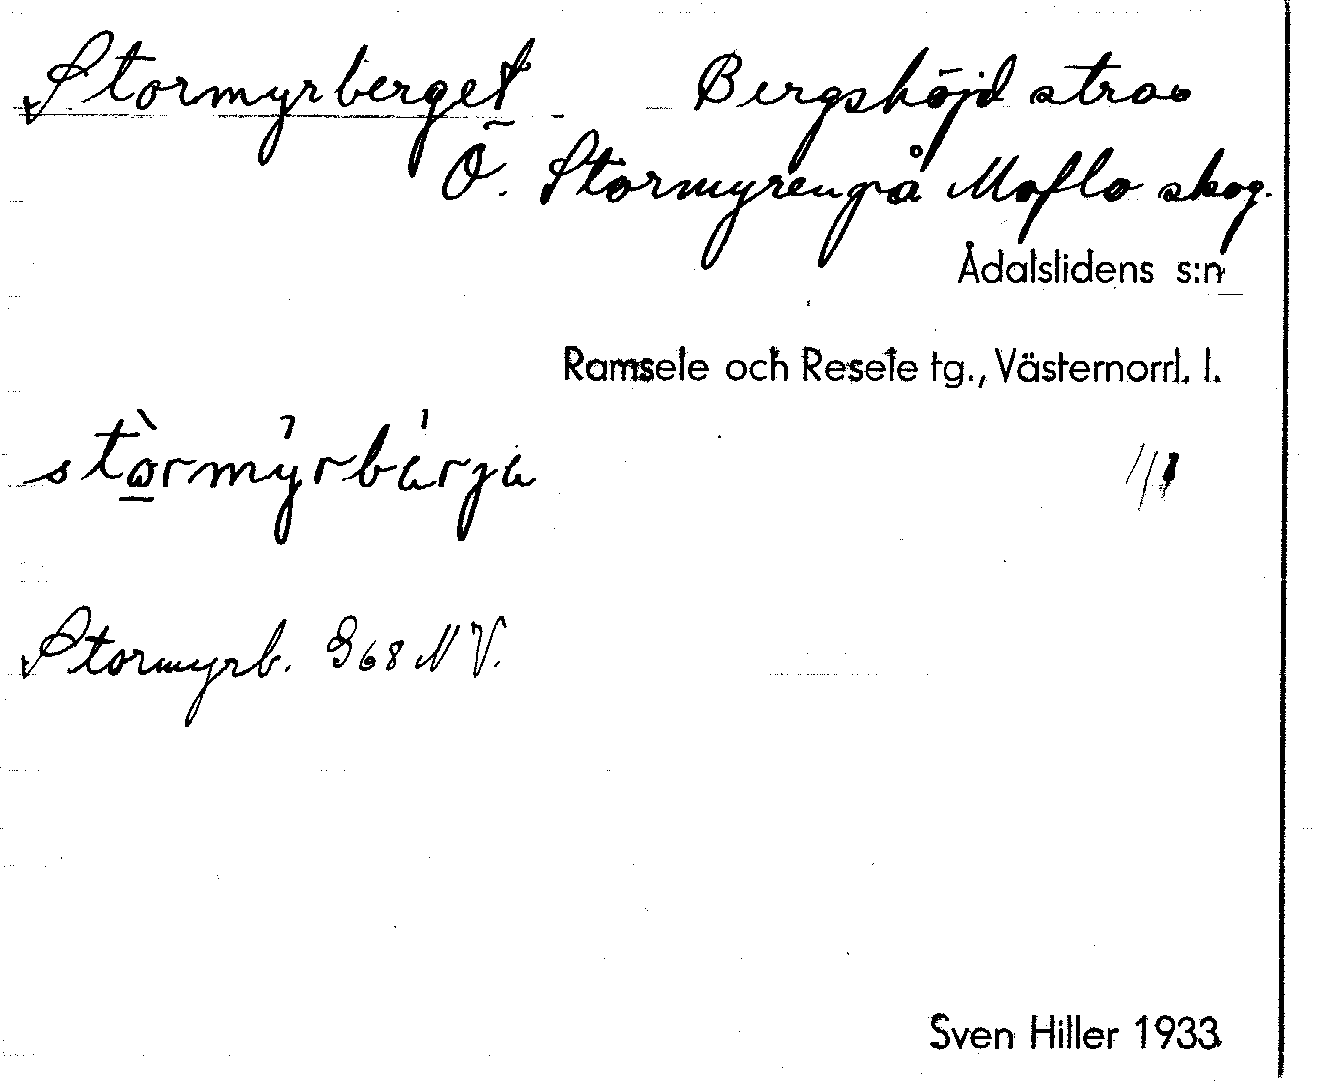 Stormyrberget Bergshöjd strax
Ö. Stormyren på Moflo skog.
Ådalslidens s:n
Ramsele och Resele tg., Västernorrl. l.
stòrmy̍rbárja
Stormyrb. G68 NV.
Sven Hiller 1933